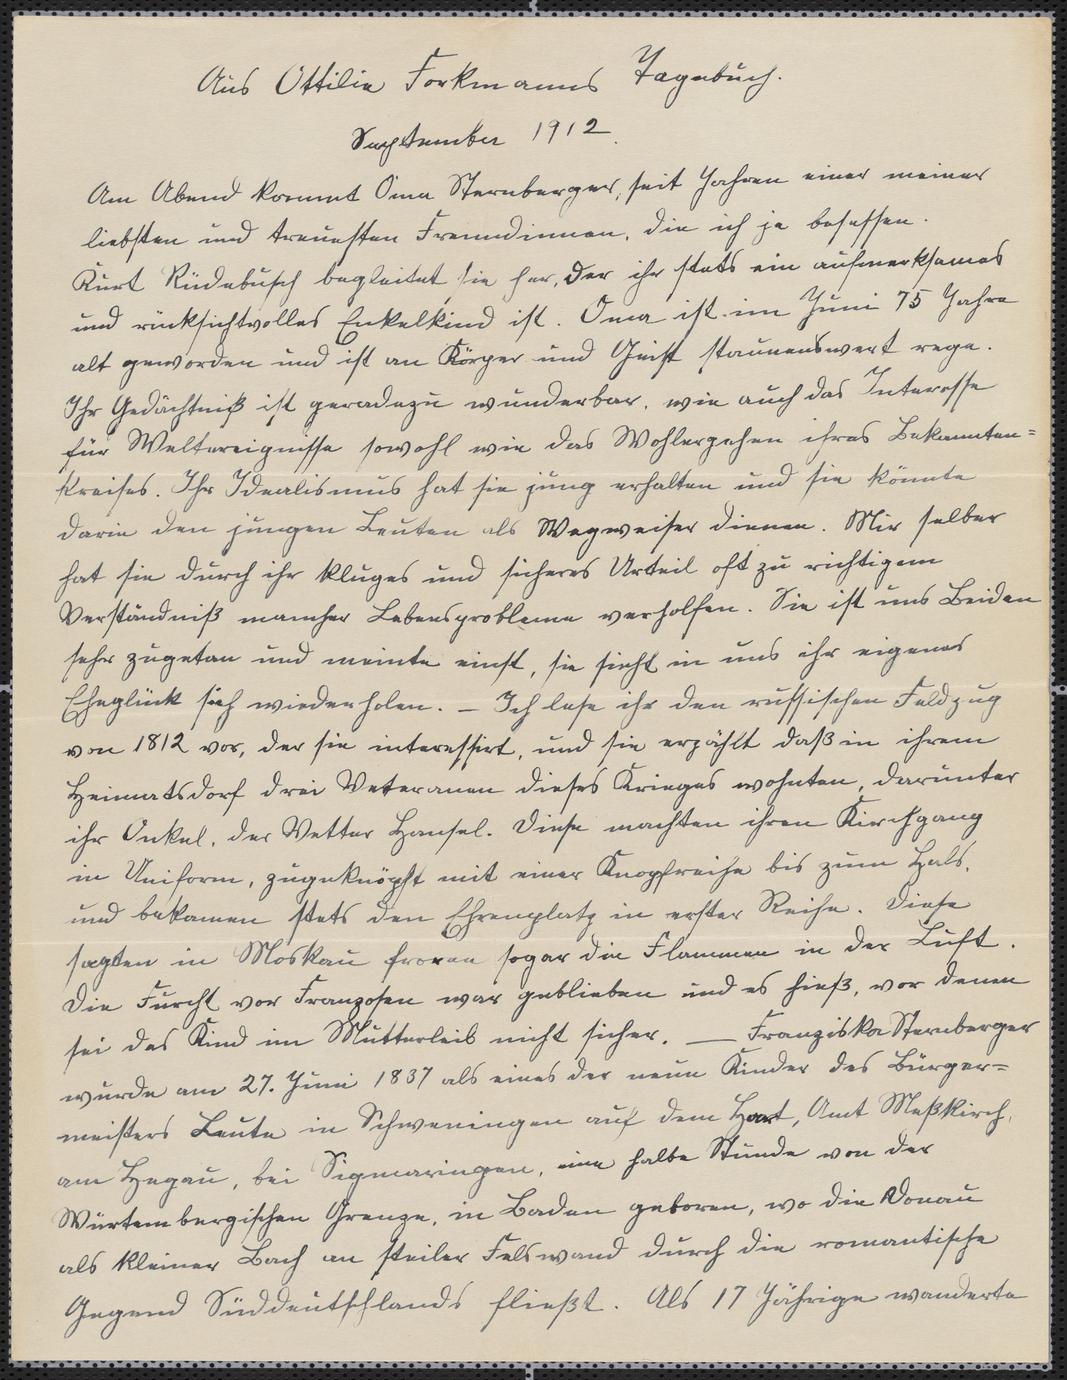 Aus Ottilie Forkmanns Tagebuch.
September 1912.
Am Abend kommt Oma Sternberger, seit Jahren einer meiner
liebsten und treuesten Freundinnen, die ich je besessen.
Kurt Rüdebusch begleitet sie her, der ihr stets ein aufmerksames
und rücksichtvolles Enkelkind ist. Oma ist im Juni 75 Jahre
alt geworden und ist an Körper und Geist staunenswert rege.
Ihr Gedächtniß ist geradezu wunderbar, wie auch das Interesse
für Weltereignisse sowohl wie das Wohlergehen ihres Bekannten=
kreises. Ihr Idealismus hat sie jung erhalten und sie könnte
darin den jungen Leuten als Wegweiser dienen. Mir selber
hat sie durch ihr kluges und sicheres Urteil oft zu richtigem
Verständniß mancher Lebensprobleme verholfen. Sie ist uns Beiden
sehr zugetan und meinte einst, sie sieht in uns ihr eigenes
Eheglück sich wiederholen. — Ich lese ihr den russischen Feldzug
von 1812 vor, der sie interessirt, und sie erzählt daß in ihrem
Heimatsdorf drei Veteranen dieses Krieges wohnten, darunter
ihr Onkel, der Vetter Hansel. Diese machten ihren Kirchgang
in Uniform, zugeknöpft mit einer Knopfreihe bis zum Hals,
und bekamen stets den Ehrenplatz in erster Reihe. Diese
sagten in Moskau froren sogar die Flammen in der Luft.
Die Furcht vor Franzosen war geblieben und es hieß, vor denen
sei das Kind im Mutterleib nicht sicher. — Franziska Sternberger
wurde am 27. Juni 1837 als eines der neun Kinder des Bürger=
meisters Leute in Schweningen auf dem Hart, Amt Meßkirch,
am Hegau, bei Sigmaringen, eine halbe Stunde von der
Würtembergischen Grenze, in Baden geboren, wo die Donau
als kleiner Bach an steiler Felswand durch die romantische
Gegend Süddeutschlands fließt. Als 17 Jährige wanderte